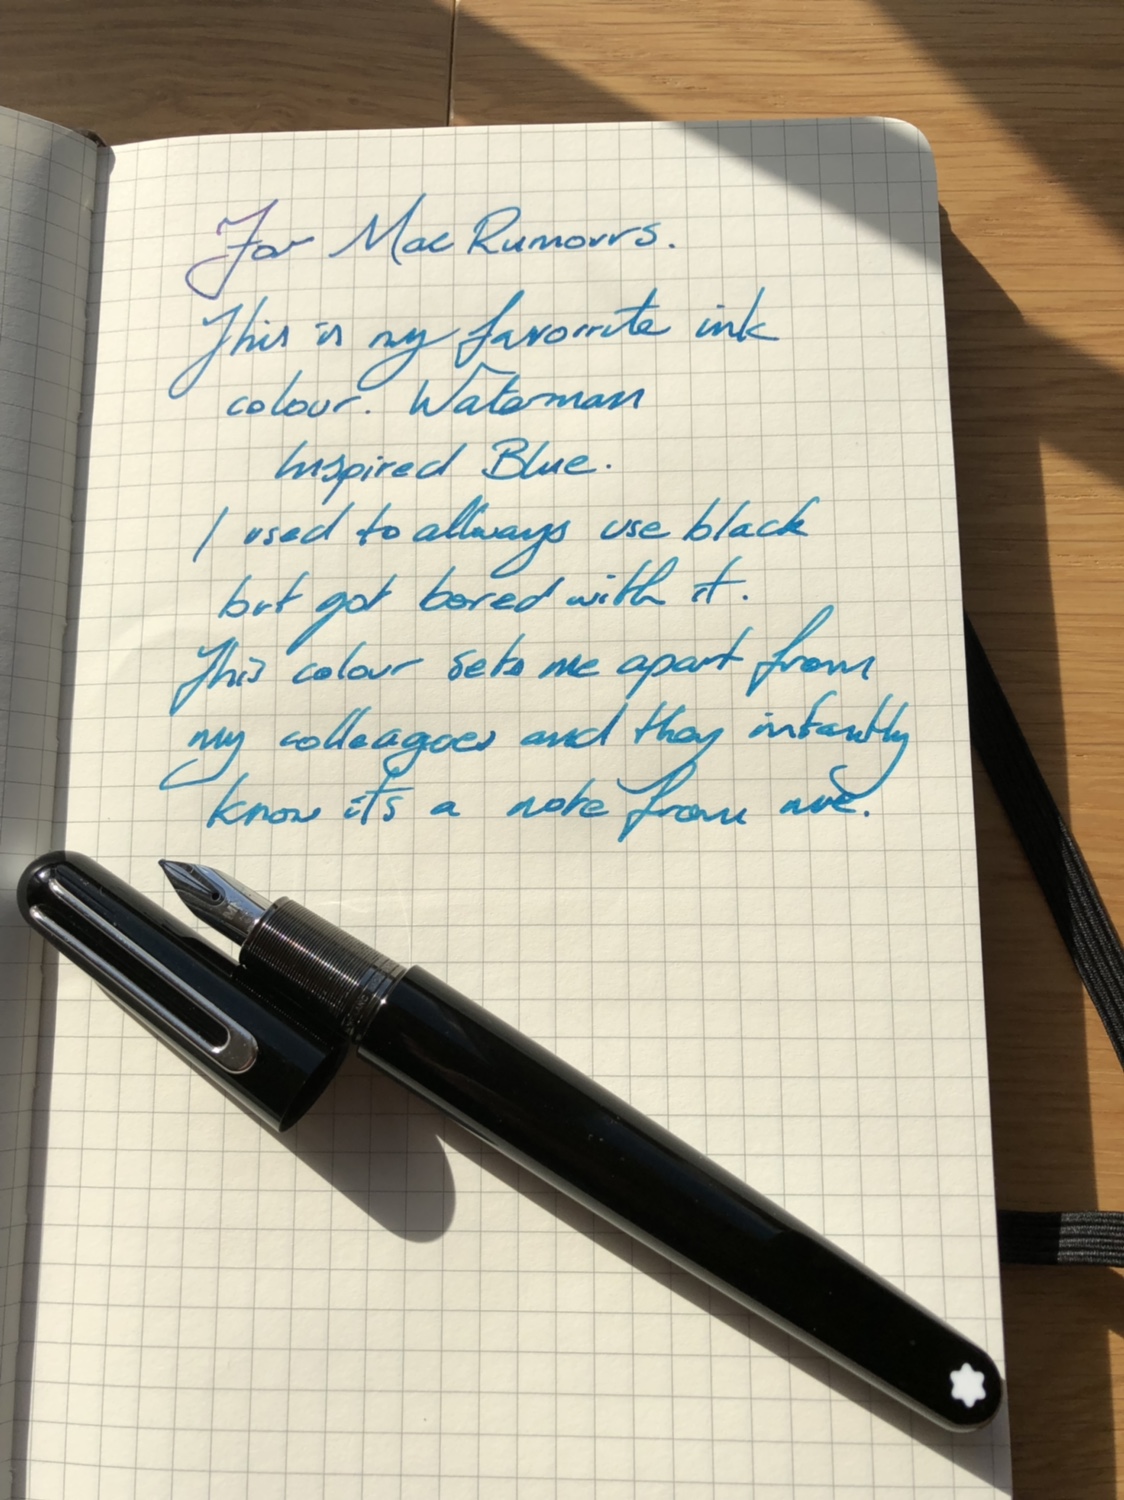 For Mac Rumours.
This is my favourite ink
colour. Waterman
Inspired Blue.
I used to allways use black
but got bored with it.
This colour sets me apart from
my colleagues and they intantly
know it's a note from me.